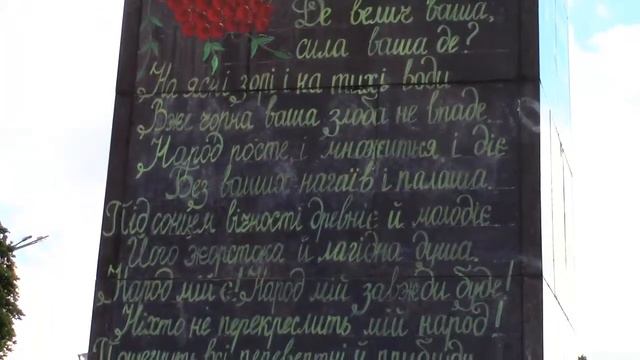 Де велич ваша,
сила ваша де?
На ясні зорі і на тихі води
Вже чорна ваша злоба не впаде.
Народ росте, і множиться, і діє
Без ваших нагаїв і палаша.
Під сонцем вічності древніє й молодіє
Його жорстока й лагідна душа.
Народ мій є! Народ мій завжди буде!
Ніхто не перекреслить мій народ!
Пощезнуть всі перевертні й приблуди